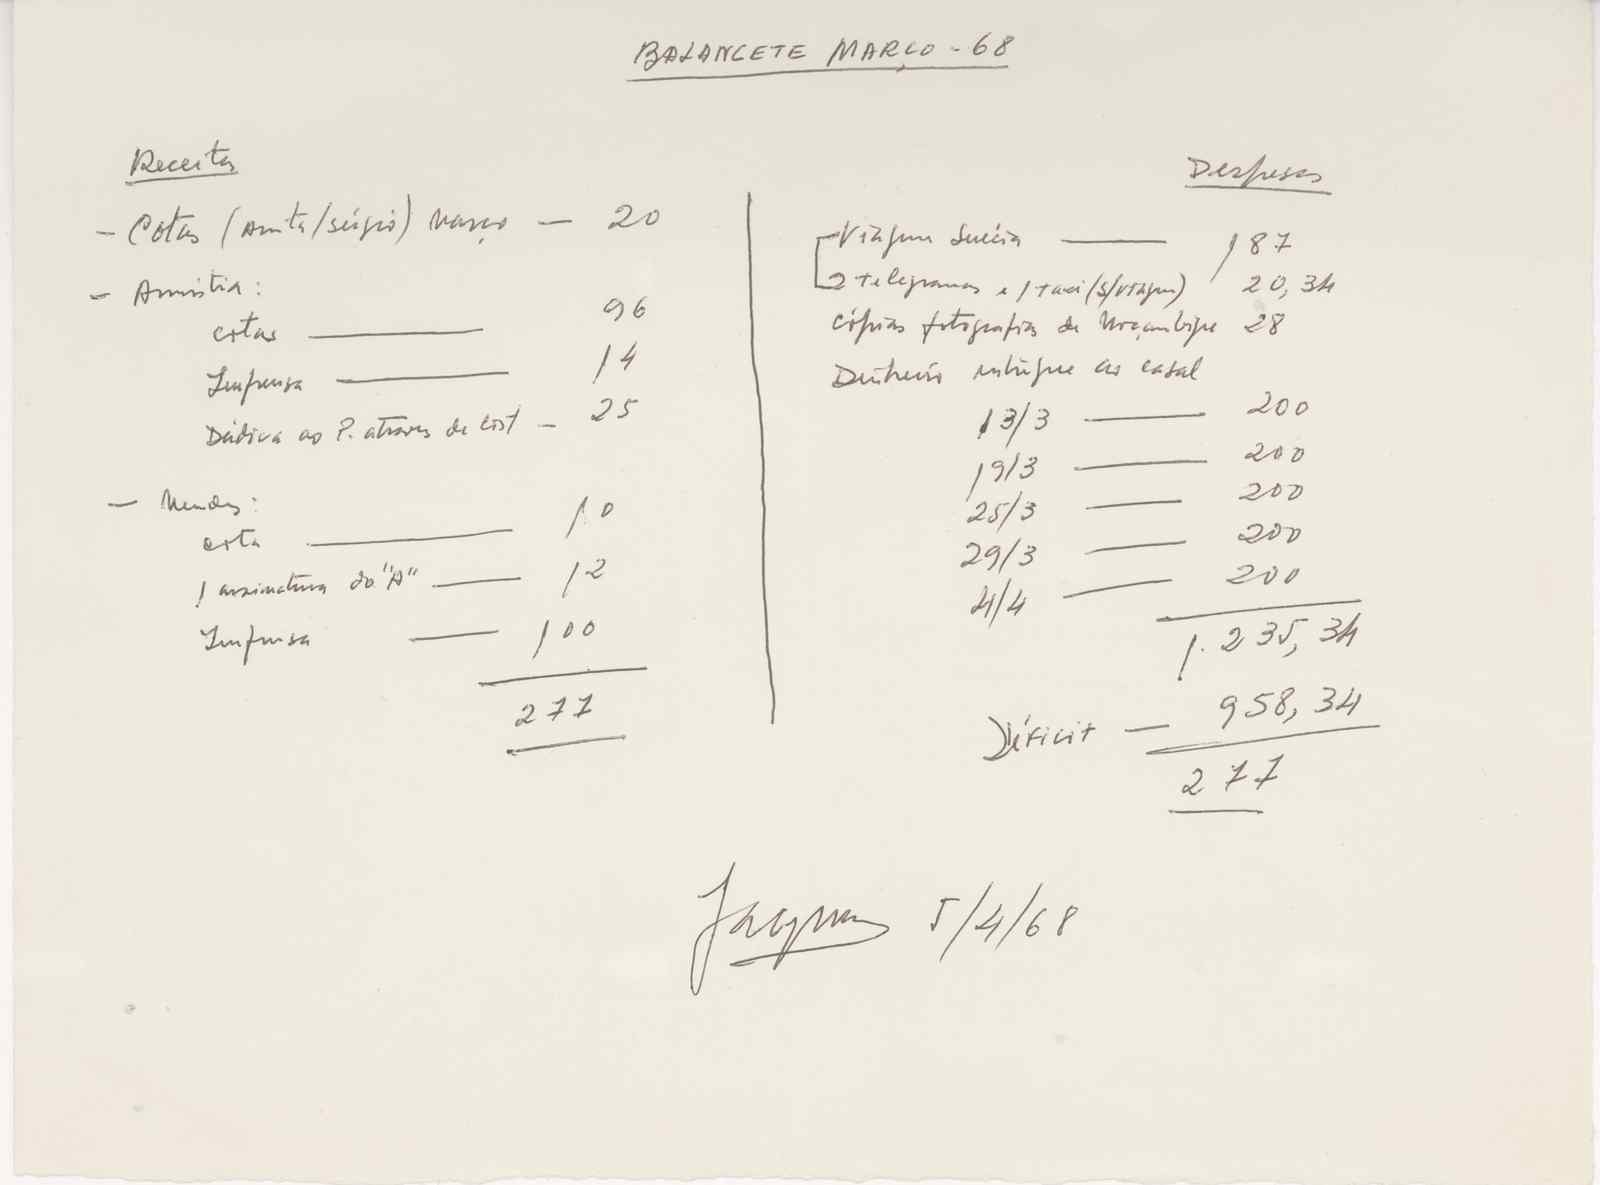 BALANCETE MARÇO - 68
Receitas
- Cotas (Anita/Sérgio) Março — 20
- Amnistia:
cotas — 96
Imprensa — 14
Dádiva ao P. através de List — 25
- Mendes:
cota — 10
1 assinatura do "A" — 12
Imprensa — 100
277
Despesas
Viagem Suécia — 187
2 telegramas e 1 taxi (s/viagem) 20,34
Cópias fotografias de Moçambique 28
Dinheiro entregue ao casal
13/3 — 200
19/3 — 200
25/3 — 200
29/3 — 200
4/4 — 200
1.235,34
Déficit — 958,34
277
Jacques 5/4/68